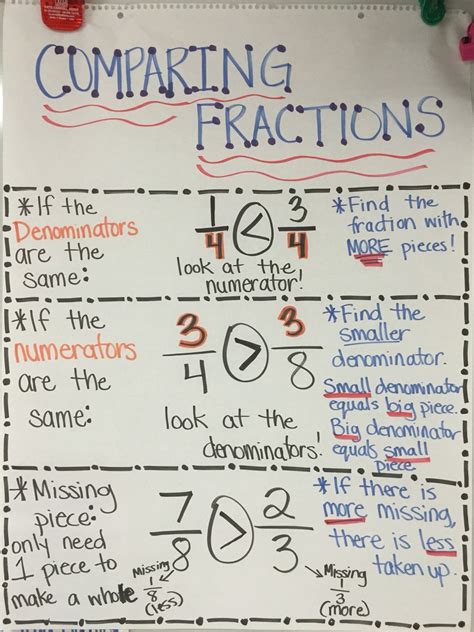 COMPARING
FRACTIONS
*If the
Denominators
are the
same:
1/4 < 3/4
look at the
numerator!
*Find the
fraction with
MORE pieces!
*If the
numerators
are the
same:
3/4 > 3/8
look at the
denominators!
*Find the
smaller
denominator.
Small denominator
equals big piece.
Big denominator
equals small
piece
*Missing
piece:
only need
1 piece to
make a whole
7/8 > 2/3
Missing
1/8
(less)
Missing
1/3
(more)
*If there is
more missing,
there is less
taken up.